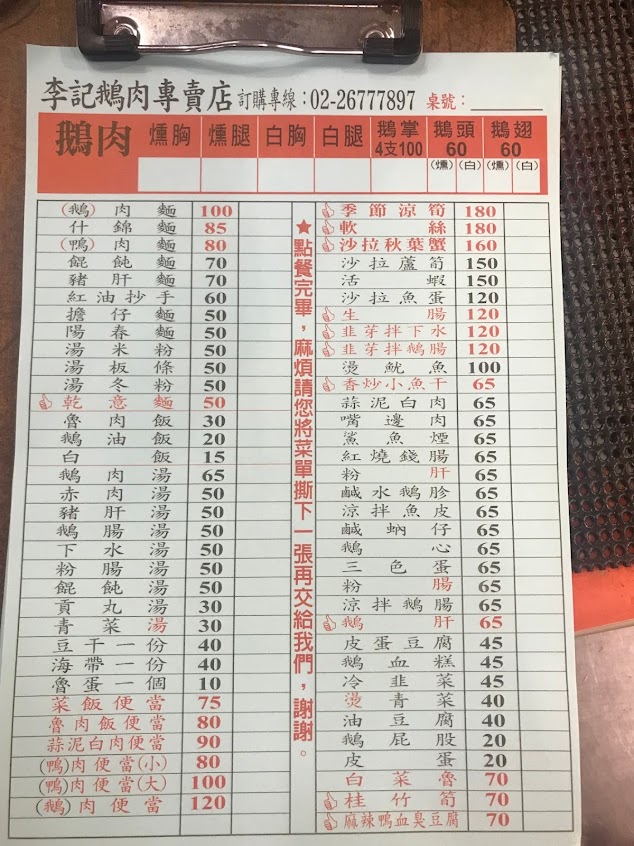 李記鵝肉專賣店 訂購專線：02-26777897 桌號：
鵝肉 燻胸 燻腿 白胸 白腿 鵝掌 4支100 鵝頭 60 鵝翅 60
(燻) (白) (燻) (白)
(鵝)肉麵 100
什錦麵 85
(鴨)肉麵 80
餛飩麵 70
豬肝麵 70
紅油抄手 60
擔仔麵 50
陽春麵 50
湯米粉 50
湯板條 50
湯冬粉 50
乾意麵 50
魯肉飯 30
鵝油飯 20
白飯 15
鵝肉湯 65
赤肉湯 50
豬肝湯 50
鵝腸湯 50
下水湯 50
粉腸湯 50
餛飩湯 50
貢丸湯 30
青菜湯 30
豆干一份 40
海帶一份 40
魯蛋一個 10
菜飯便當 75
魯肉飯便當 80
蒜泥白肉便當 90
(鴨)肉便當(小) 80
(鴨)肉便當(大) 100
(鵝)肉便當 120
★點餐完畢，麻煩請您將菜單撕下一張再交給我們，謝謝。
季節涼筍 180
軟絲 180
沙拉秋葉蟹 160
沙拉蘆筍 150
活蝦 150
沙拉魚蛋 120
生腸 120
韭芽拌下水 120
韭芽拌鵝腸 120
燙魷魚 100
香炒小魚干 65
蒜泥白肉 65
嘴邊肉 65
鯊魚煙 65
紅燒錢腸 65
粉肝 65
鹹水鵝胗 65
涼拌魚皮 65
鹹蚋仔 65
鵝心 65
三色蛋 65
粉腸 65
涼拌鵝腸 65
鵝肝 65
皮蛋豆腐 45
鵝血糕 45
冷韭菜 45
燙青菜 40
油豆腐 40
鵝屁股 20
皮蛋 20
白菜魯 70
桂竹筍 70
麻辣鴨血臭豆腐 70